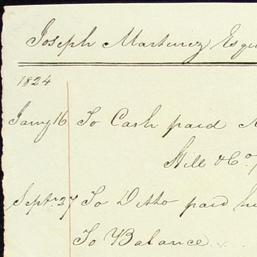 Joseph Martinez Esqu
1824
Jany 16 To Cash paid
Hill & Co.
Septr. 27 To Ditto paid hi
To Balance